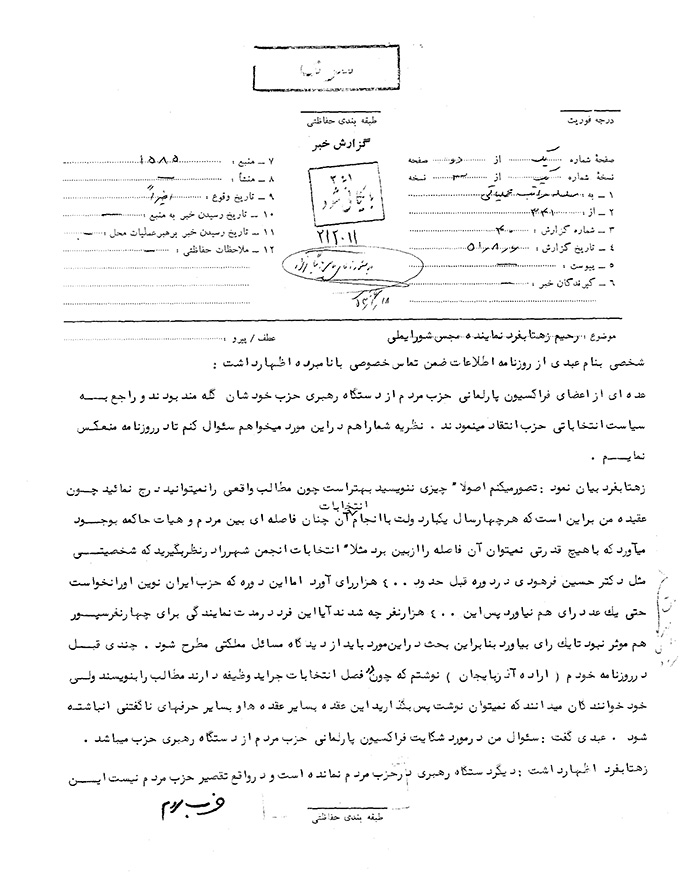 درجه فوریت
طبقه بندی حفاظتی
گزارش خبر
صفحهٔ شماره یک از دو صفحه
نسخهٔ شماره یک از ۳ نسخه
۱ ـ به :
۲ ـ از : ۳۴۱
۳ ـ شماره گزارش :
۴ ـ تاریخ گزارش :
۵ ـ پیوست : —
۶ ـ گیرندگان خبر : —
۷ ـ منبع : ۱۵۸۵
۸ ـ منشأ : —
۹ ـ تاریخ وقوع : اخیراً
۱۰ ـ تاریخ رسیدن خبر به منبع : —
۱۱ ـ تاریخ رسیدن خبر برهبرعملیات محل : —
۱۲ ـ ملاحظات حفاظتی : —
بایگانی شود
موضوع : رحیم زهتابفرد نماینده مجس شورایطی
عطف / پیرو :
شخصی بنام عبدی از روزنامه اطلاعات ضمن تماس خصوصی با نامبرده اظهار داشت :
عده ای از اعضای فراکسیون پارلمانی حزب مردم از دستگاه رهبری حزب خودشان گله مند بودند و راجع بــه
سیاست انتخاباتی حزب انتقاد مینمودند . نظریه شما را هم در این مورد میخواهم سئوال کنم تا در روزنامه منعکس
نمایـــم .
زهتابفرد بیان نمود : تصور میکنم اصولا" چیزی ننویسید بهتراست چون مطالب واقعی را نمیتوانید درج نمائید چـون
عقیده من براین است که هرچهارسال یکبار دولت با انجام انتخابات آن چنان فاصله ای بین مردم و هیات حاکمه بوجـود
میآورد که با هیچ قدرتی نمیتوان آن فاصله را از بین برد مثلا" انتخابات انجمن شهر را در نظر بگیرید که شخصیتـی
مثل دکتر حسین فرهودی در دوره قبل حدود ۴۰۰ هزار رای آورد اما این دوره که حزب ایران نوین او را نخواست
حتی یك عدد رای هم نیاورد پس این ۴۰۰ هزار نفر چه شدند آیا این فرد در مدت نمایندگی برای چهار نفر سپـور
هم موثر نبود تا یك رای بیاورد بنابراین بحث در این مورد باید از دیدگاه مسائل مملکتی مطرح شود . چندی قبــل
در روزنامه خودم ( اراده آذربایجان ) نوشتم که چون در فصل انتخابات جراید وظیفه دارند مطالب را بنویسند ولـی
خود خوانندگان میدانند که نمیتوان نوشت پس بگذارید این عقده بسایر عقده ها و بسایر حرفهای ناگفتنی انباشتـه
شود . عبدی گفت : سئوال من در مورد شکایت فراکسیون پارلمانی حزب مردم از دستگاه رهبری حزب میباشد .
زهتابفرد اظهار داشت : دیگر دستگاه رهبری در حزب مردم نمانده است و در واقع تقصیر حزب مردم نیست ایــن
حزب مردم
طبقه بندی حفاظتی